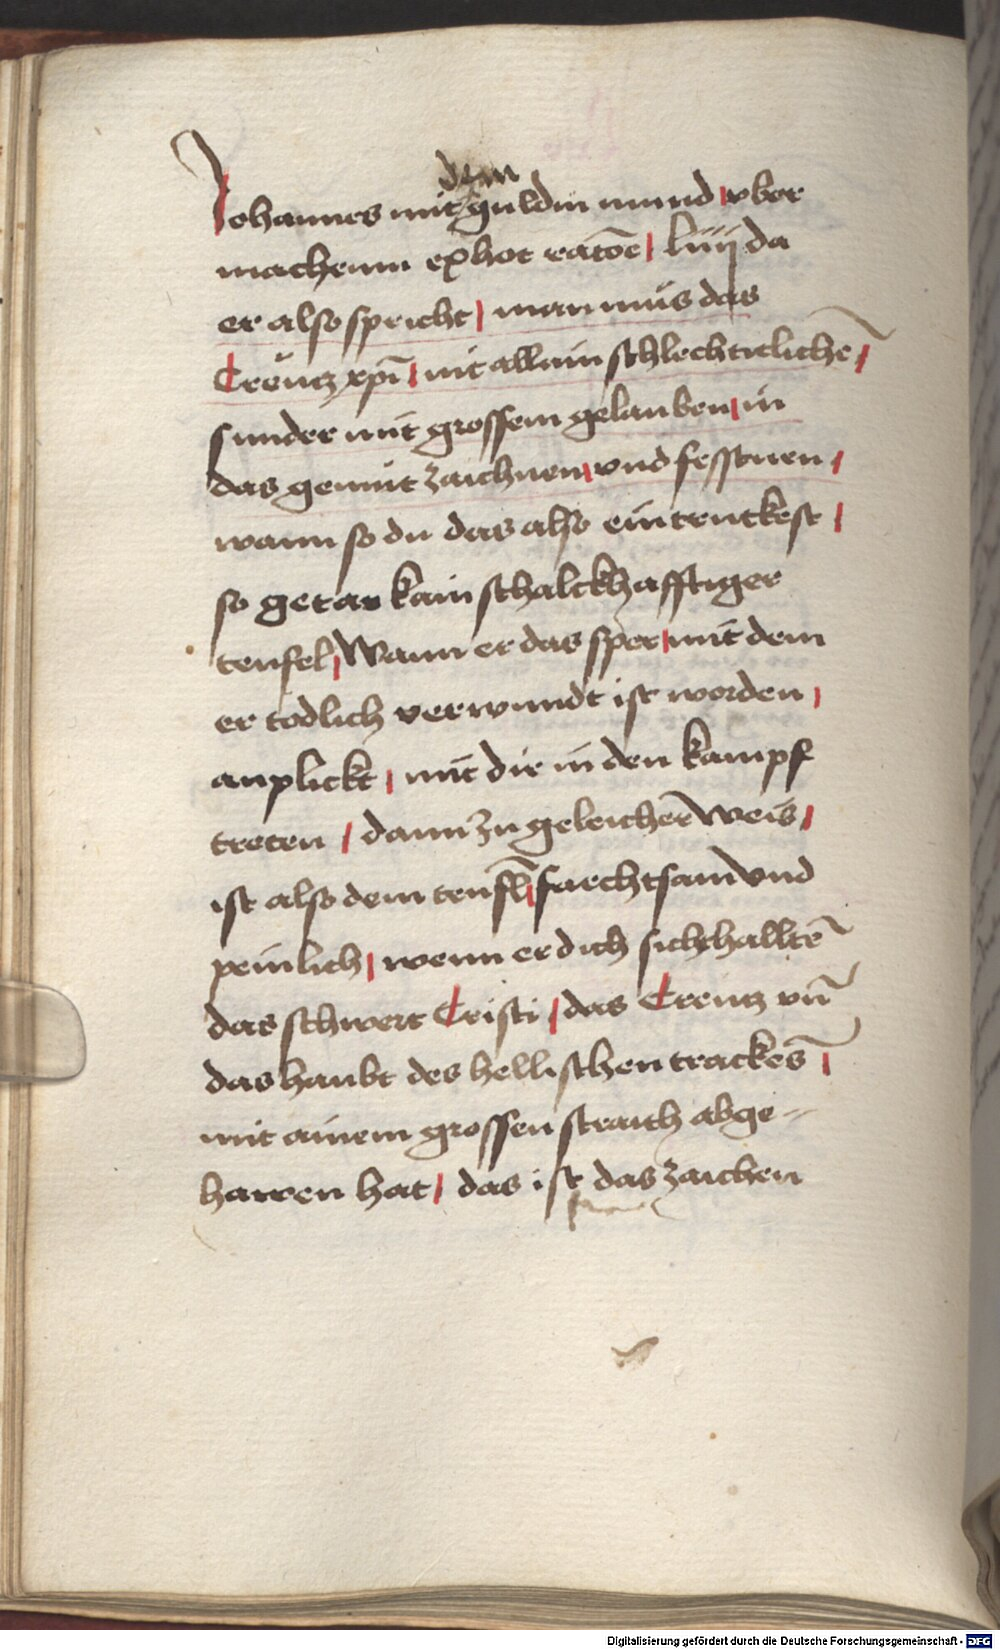 dem
Johannes mit guldin mund vber
matheum exhor ratōe liiij da
er also spricht man mus das
Creutz xpī nit allain schlechticlichē
sunder mit grossem gelauben in
das gemüt zaichnen vnd festnen
wann so du das also eintruckest
so getar kain schalckhafftiger
teufel Wann er das sper mit dem
er todlich verwundt ist worden
anplickt mit dir in den kampf
treten dann zu geleicher weis
ist also dem teufl forchtsam vnd
peinlich wenn er dich sicht halltē
das schwert Cristi das Creutz vn̄
das haubt des hellischen trackes
mit ainem grossen straich abge-
hawen hat das ist das zaichen
Digitalisierung gefördert durch die Deutsche Forschungsgemeinschaft - DFG